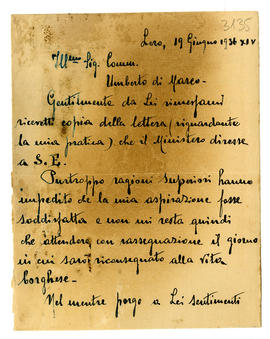 3135
Loro, 19 Giugno 1936 XIV
Ill.mo Sig. Comm.
Umberto di Marco-
Gentilmente da Lei rimessami
ricevetti copia della lettera (riguardante
la mia pratica) che il Ministero diresse
a S. E.
Purtroppo ragioni superiori hanno
impedito che la mia aspirazione fosse
soddisfatta e non mi resta quindi
che attendere con rassegnazione il giorno
in cui sarò riconsegnato alla vita
borghese-
Nel mentre porgo a Lei sentimenti